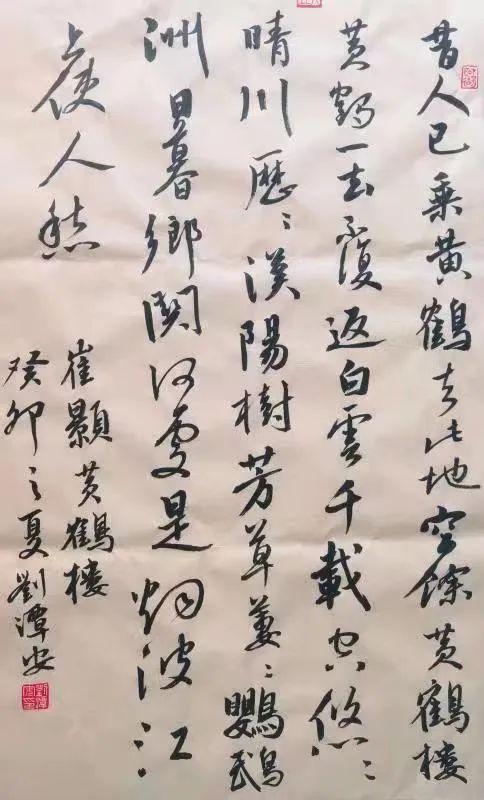 昔人已乘黄鶴去此地空餘黄鶴樓
黄鶴一去不復返白雲千載空悠〻
晴川歷〻漢陽樹芳草萋〻鸚鵡
洲日暮鄉關何處是烟波江
上使人愁
崔顥黄鶴樓
癸卯之夏劉潭安